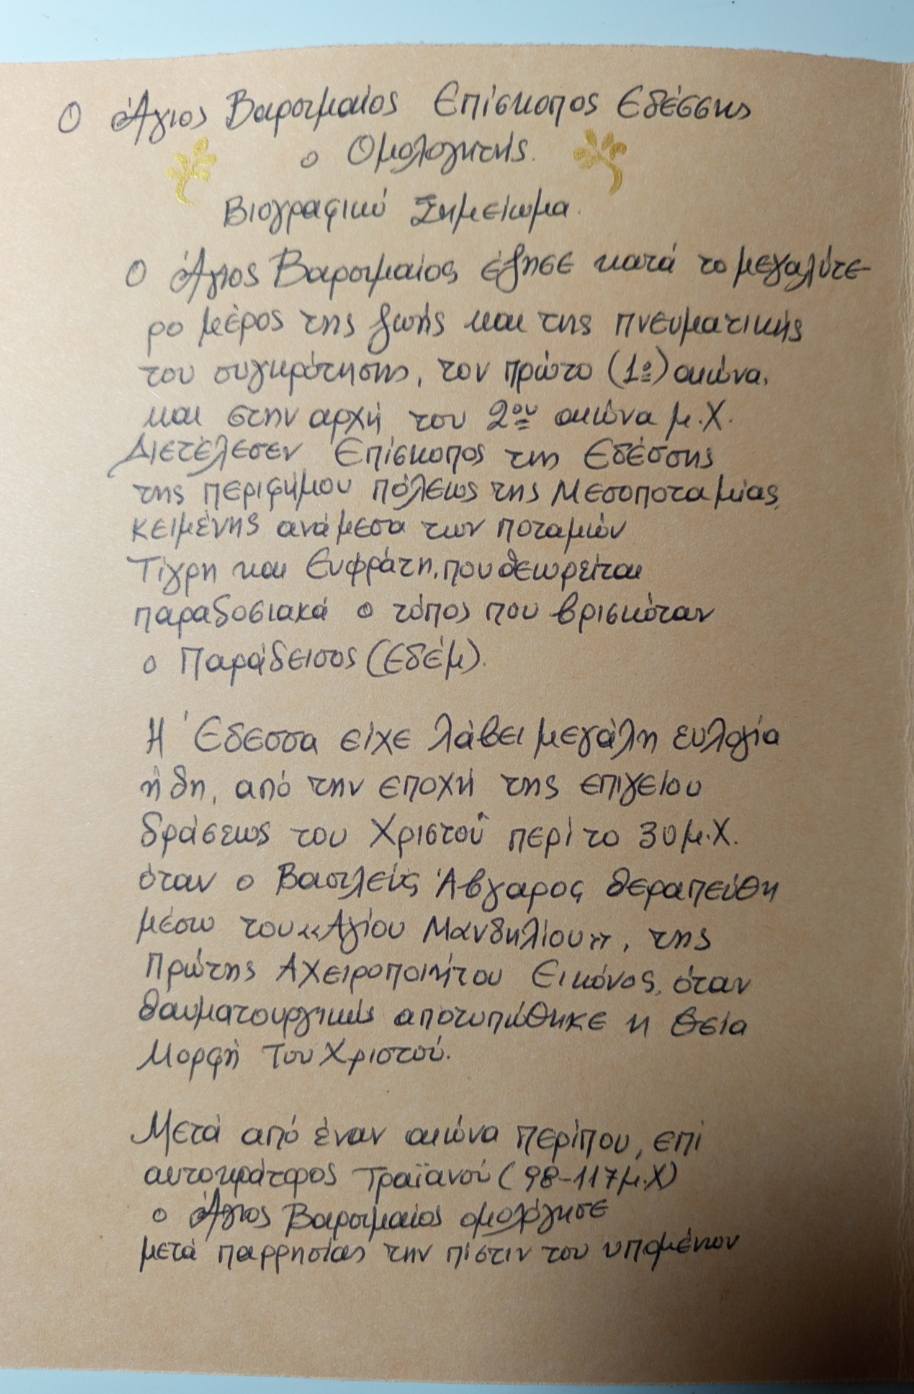 Ο Άγιος Βαρσιμαίος Επίσκοπος Εδέσσης
ο Ομολογητής.
Βιογραφικό Σημείωμα.
Ο Άγιος Βαρσιμαίος έζησε κατά το μεγαλύτε-
ρο μέρος της ζωής και της πνευματικής
του συγκρότησης, τον πρώτο (1º) αιώνα,
και στην αρχή του 2ου αιώνα μ.Χ.
Διετέλεσεν Επίσκοπος της Εδέσσης
της περιφήμου πόλεως της Μεσοποταμίας,
κειμένης ανάμεσα των ποταμών
Τίγρη και Ευφράτη, που θεωρείται
παραδοσιακά ο τόπος που βρισκόταν
ο Παράδεισος (Εδέμ).
Η Έδεσσα είχε λάβει μεγάλη ευλογία
ήδη, από την εποχή της επιγείου
δράσεως του Χριστού περί το 30 μ.Χ.
όταν ο Βασιλεύς Άβγαρος θεραπεύθη
μέσω του «Αγίου Μανδηλίου», της
Πρώτης Αχειροποιήτου Εικόνος, όταν
θαυματουργικώς αποτυπώθηκε η Θεία
Μορφή Του Χριστού.
Μετά από έναν αιώνα περίπου, επί
αυτοκράτορος Τραϊανού (98-117 μ.Χ)
ο Άγιος Βαρσιμαίος ομολόγησε
μετά παρρησίας την πίστιν του υπομένων